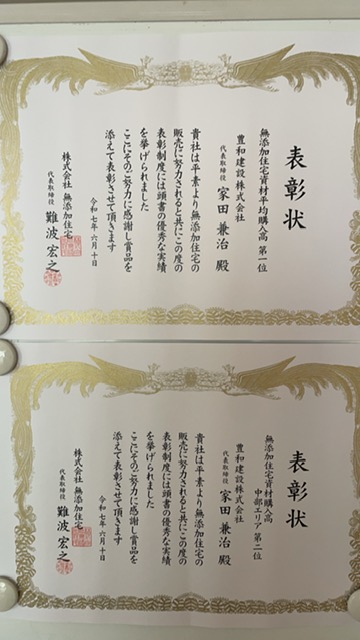 表彰状
無添加住宅資材平均購入高 第一位
豊和建設株式会社
代表取締役 家田兼治 殿
貴社は平素より無添加住宅の
販売に努力されると共にこの度の
表彰制度には頭書の優秀な実績
を挙げられました
ここにそのご努力に感謝し賞品を
添えて表彰させて頂きます
令和七年六月十日
株式会社 無添加住宅
代表取締役 難波宏之
表彰状
無添加住宅資材購入高
中部エリア 第二位
豊和建設株式会社
代表取締役 家田兼治 殿
貴社は平素より無添加住宅の
販売に努力されると共にこの度の
表彰制度には頭書の優秀な実績
を挙げられました
ここにそのご努力に感謝し賞品を
添えて表彰させて頂きます
令和七年六月十日
株式会社 無添加住宅
代表取締役 難波宏之